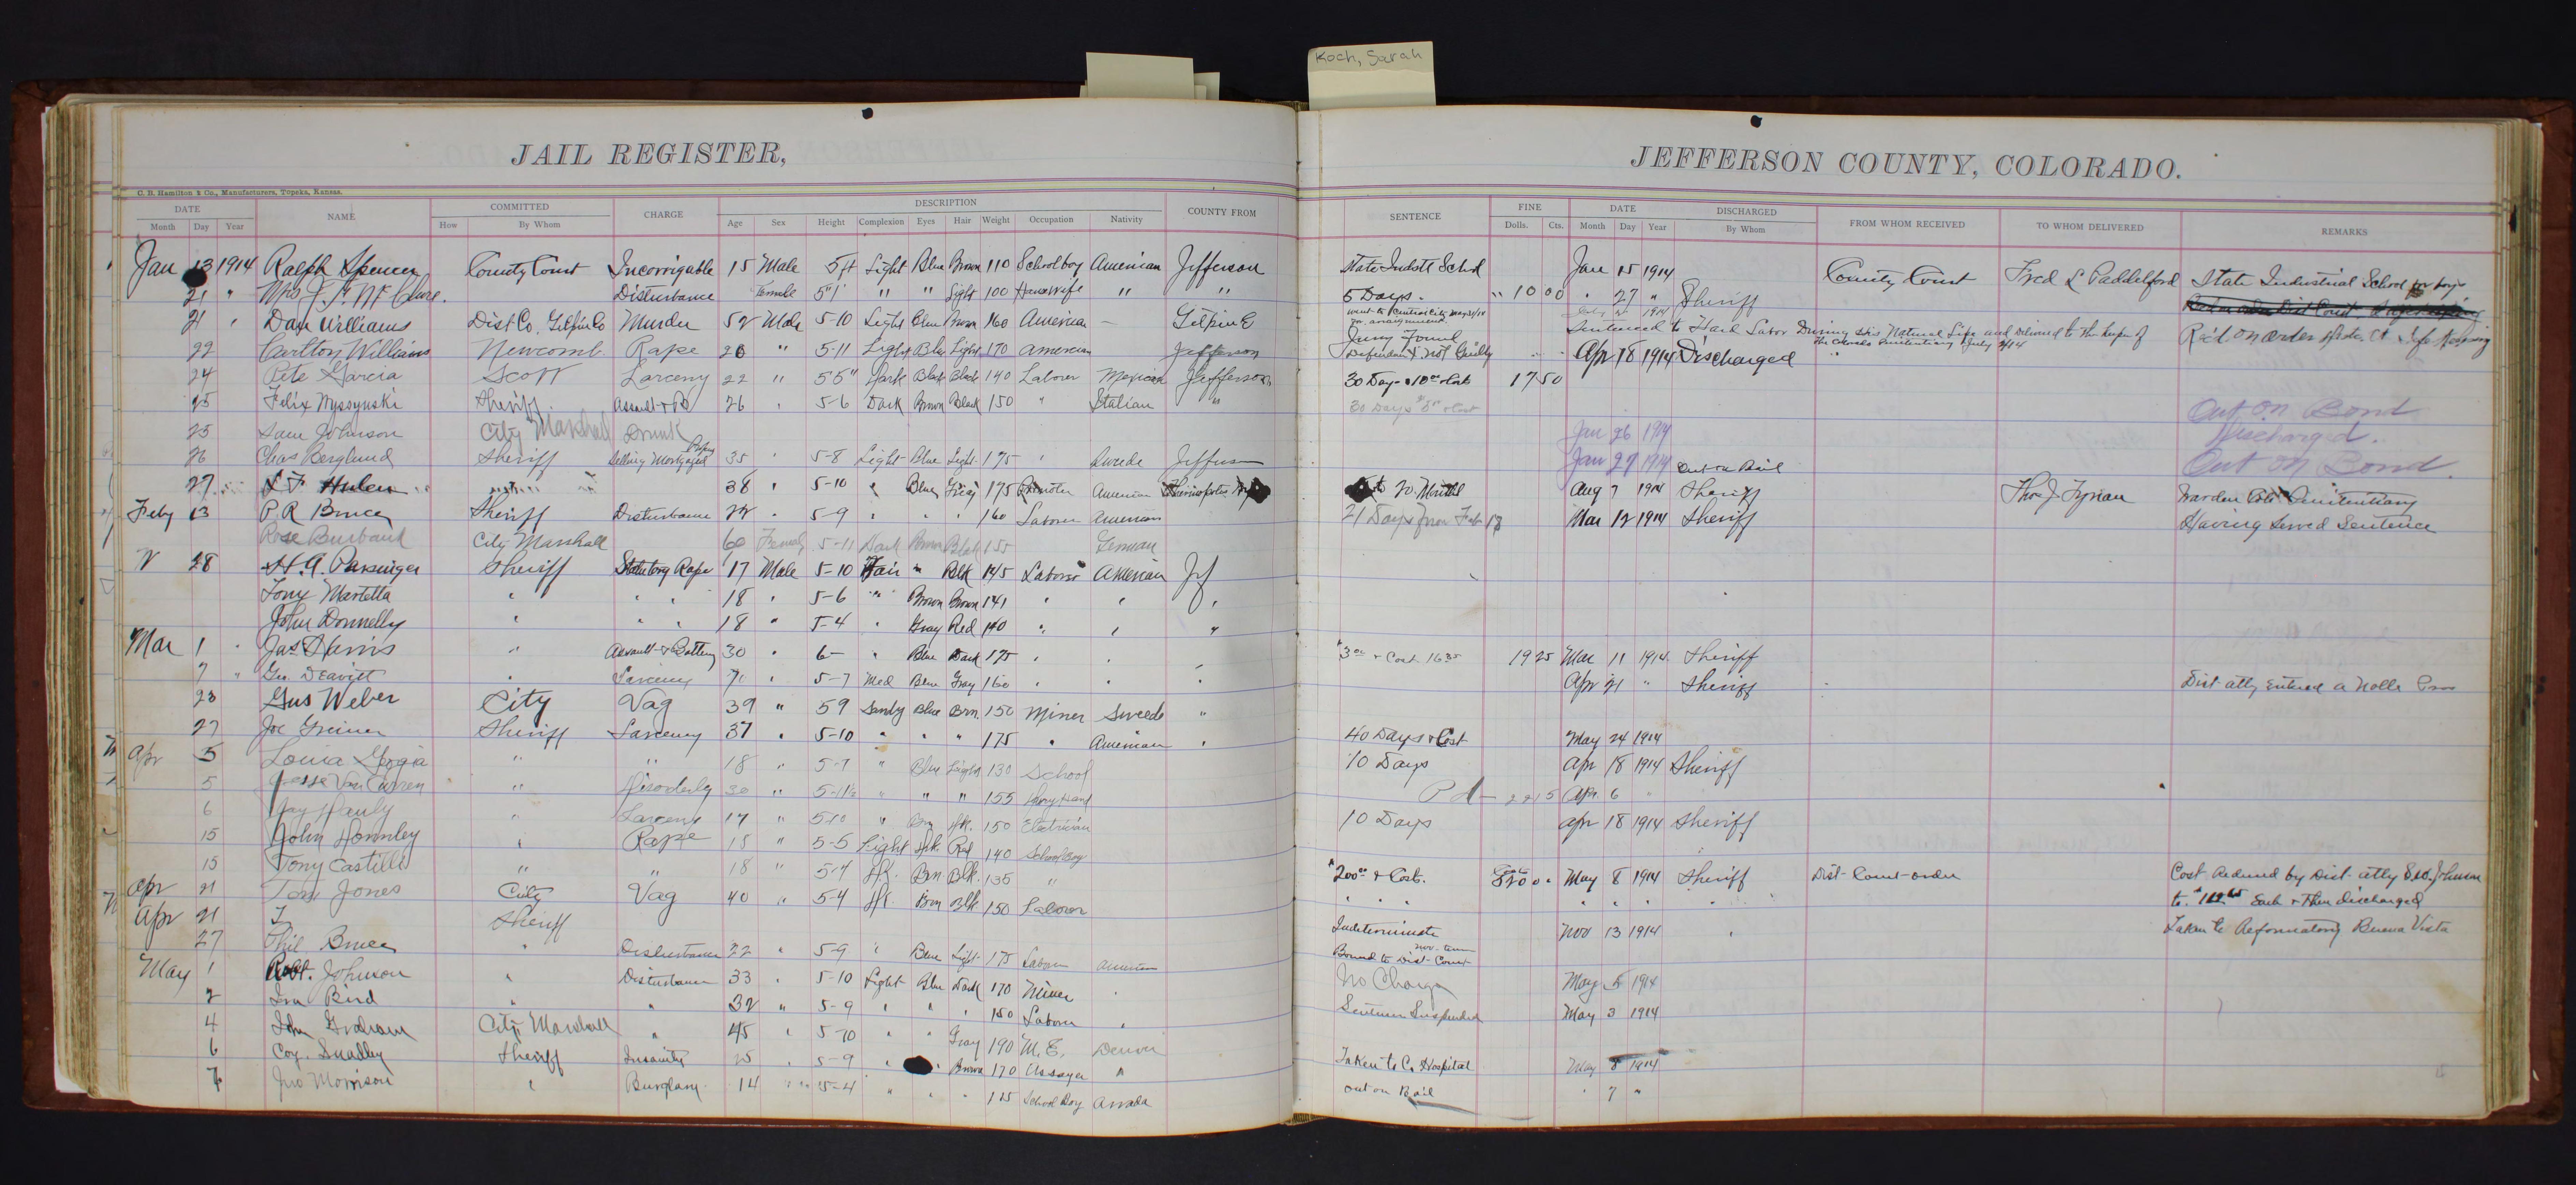 Koch, Sarah
JAIL REGISTER,
JEFFERSON COUNTY, COLORADO.
C. B. Hamilton & Co., Manufacturers, Topeka, Kansas.
DATE NAME COMMITTED CHARGE DESCRIPTION COUNTY FROM SENTENCE FINE DATE DISCHARGED FROM WHOM RECEIVED TO WHOM DELIVERED REMARKS
Month Day Year How By Whom Age Sex Height Complexion Eyes Hair Weight Occupation Nativity Dolls. Cts. Month Day Year By Whom
Jan 13 1914 Ralph Spencer County Court Incorrigable 15 Male 5ft Light Blue Brown 110 Schoolboy American Jefferson State Indstl Schol Jan 15 1914 County Court Fred L Paddelford State Industrial School for boys
21 " Mrs J. F. McClure. Disturbance Female 5"1' " " Light 100 Housewife " " 5 Days. " 10 00 " 27 " Sheriff
21 " Dan Williams Dist Co. Gilpin Co Murder 52 Male 5-10 Light Blue Brown 160 American — Gilpin went to Central City May 31/14 for arraignment. Sentenced to Hard Labor During his Natural Life and Delivered to the keeper of the Colorado Penitentiary July 2/14
22 Carlton Williams Newcomb. Rape 26 " 5-11 Light Blue Light 170 American Jefferson Jury Found Defendant Not Guilty Apr 18 1914 Discharged
24 Pete Garcia Scott Larceny 22 " 5 5" Dark Black Black 140 Laborer Mexican Jefferson 30 Days & 10 00 & Costs 17 50
25 Felix Sheriff Assault & B 26 " 5-6 Dark Brown Black 150 " Italian " 30 Days & Cost Out on Bond
25 Sam Johnson City Marshall Drunk Jan 26 1914 Discharged.
26 Chas Berglund Sheriff Selling Mortgaged 35 " 5-8 Light Blue Light 175 " Swede Jefferson Jan 27 1914 Out on Bail Out on Bond.
27 L F Hulen 38 " 5-10 " Blue Gray 175 Promoter American Aug 7 1914 Sheriff Thos J. Tynan Warden Colo Penitentiary
Feby 13 P R Bruce Sheriff Disturbance 22 " 5-9 " " " 160 Laborer American 21 Days from Feb 18 Mar 12 1914 Sheriff Having Served Sentence
Rose Burbank City Marshall 60 Female 5-11 Dark Brown Black 155 German
" 28 H. A. Parsinger Sheriff Statutory Rape 17 Male 5-10 Fair " Blk 145 Laborer American Jef
Tony Martella " " " 18 " 5-6 " Brown Brown 141 " " "
John Donnelly " " " 18 " 5-4 " Gray Red 140 " " "
Mar 1 " Jas Harris " Assault & Battery 30 " 6- " Blue Dark 175 " " $3 00 & Cost 16 25 19 25 Mar 11 1914 Sheriff
7 " Geo. Deavitt " Larceny 71 " 5-7 Med Blue Gray 160 " " " Apr 21 " Sheriff Dist atty Entered a Nolle Pros
23 Gus Weber City Vag 39 " 59 Sandy Blue Brn. 150 Miner Sweede "
27 Joe Greiner Sheriff Larceny 37 " 5-10 " " " 175 " American " 40 Days & Cost May 24 1914
Apr 5 Louia " " 18 " 5-7 " Blue Light 130 School 10 Days Apr 18 1914 Sheriff
5 Jesse Van " Disorderly 30 " 5-11½ " " " 155 Pd — Apr 6 "
6 Jay Pauly " Larceny 17 " 5-10 " Brn 150 Electrician 10 Days Apr 18 1914 Sheriff
15 John " Rape 18 " 5-5 Light Red 140 School Boy
15 Tony Castille " " 18 " 5-4 Brn Blk. 135 " $200 00 & Costs. May 8 1914 Sheriff Dist Court order Cost Reduced by Dist atty Geo. Johnson
Apr 21 Tom Jones City Vag 40 " 5-4 Brn Blk 150 Laborer " " " " " " " to Each & then discharged
Apr 21 Sheriff Indeterminate Nov 13 1914 " Taken to Reformatory Buena Vista
27 Phil Bruce " Disturbance 22 " 5-9 " Blue Light 175 Laborer American Bound to Dist Court Nov-term
May 1 Robt. Johnson " Disturbance 33 " 5-10 Light Blue Dark 170 Miner " No Charge May 5 1914
2 Ira Bird " " 32 " 5-9 " " " 150 Laborer " Sentence Suspended May 3 1914
4 John Graham City Marshall " 45 " 5-10 " " Gray 190 M. E. Denver
6 Coy. Sheriff Insanity 25 " 5-9 " " Brown 170 Assayer " Taken to C. Hospital May 8 1914
7 Jno Morrison " Burglary 14 " 5-4 " " " 125 School Boy Arvada out on Bail " 7 "